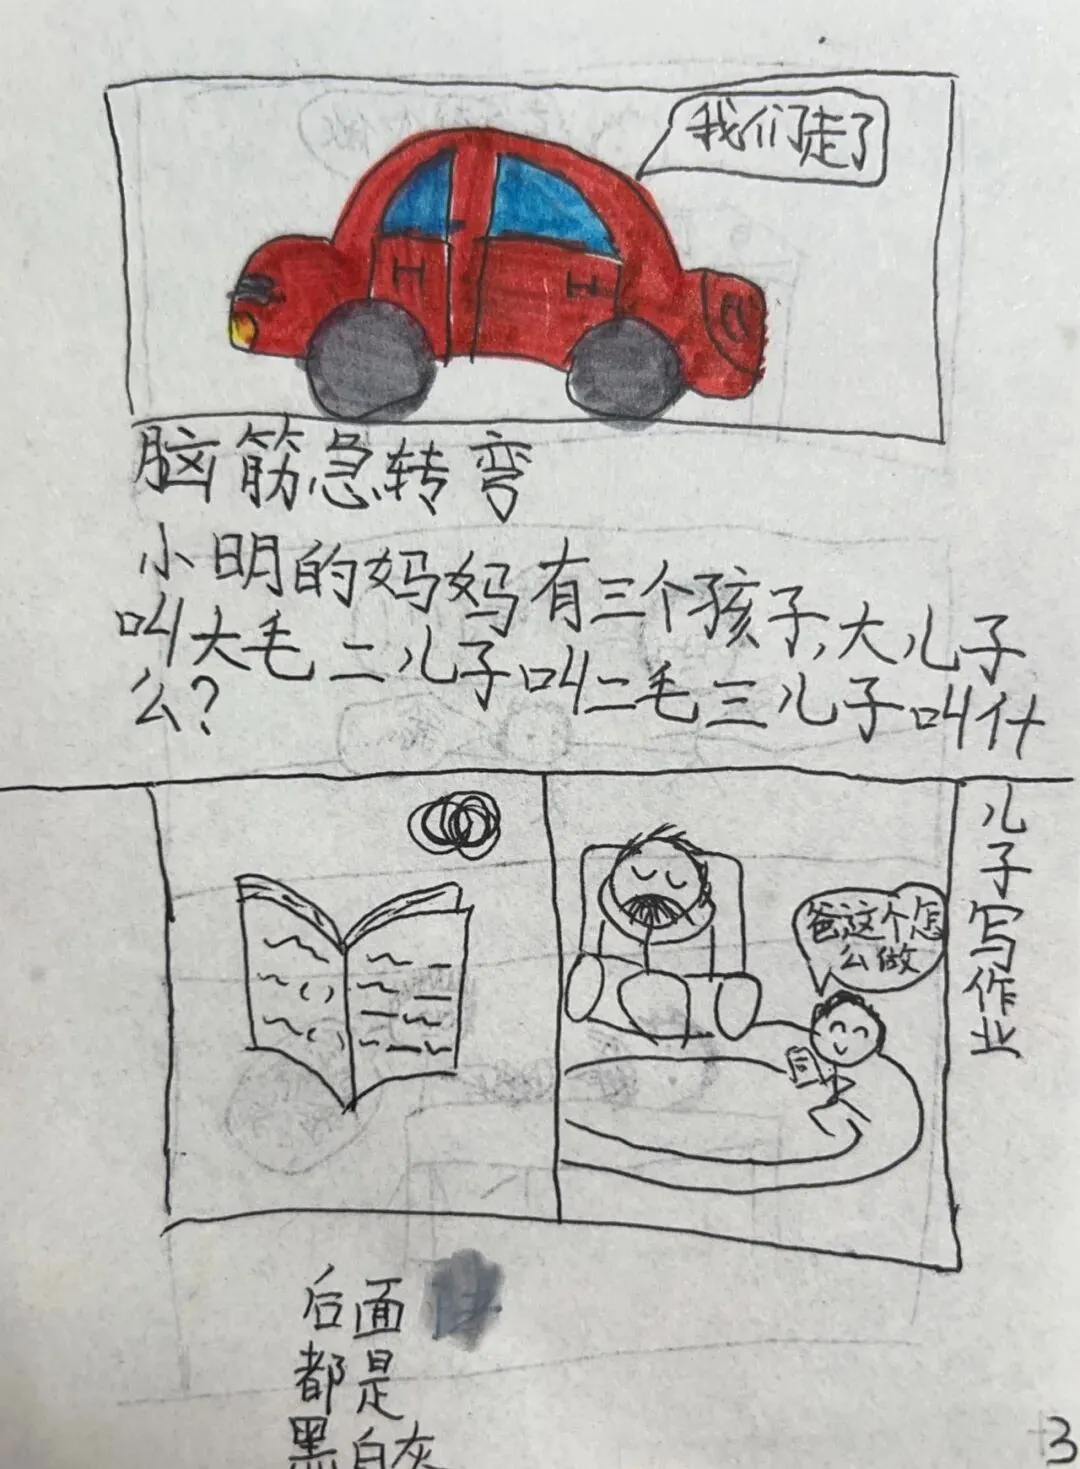 我们走了
脑筋急转弯
小明的妈妈有三个孩子,大儿子
叫大毛二儿子叫二毛三儿子叫什
么?
儿子写作业
爸这个怎
么做
后面
都是
黑白灰
3